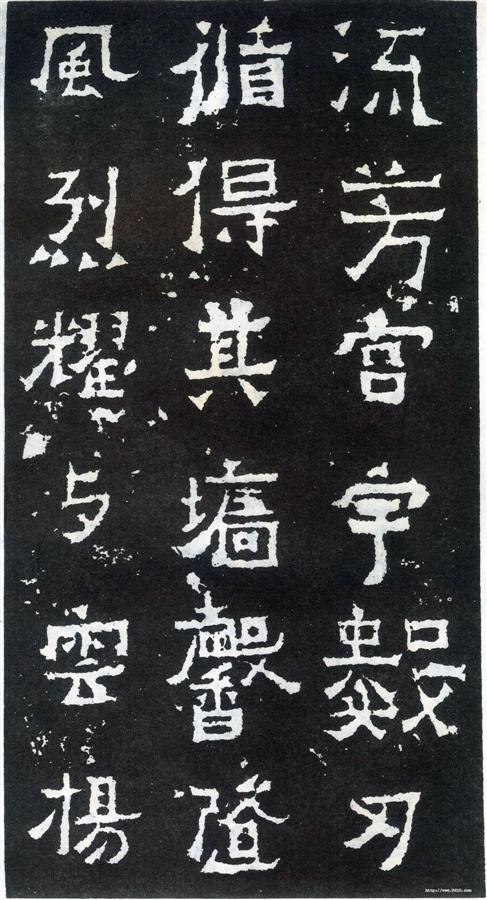 流芳宮宇數刃
循得其墻馨隨
風烈耀与雲楊
http://www.9610.com